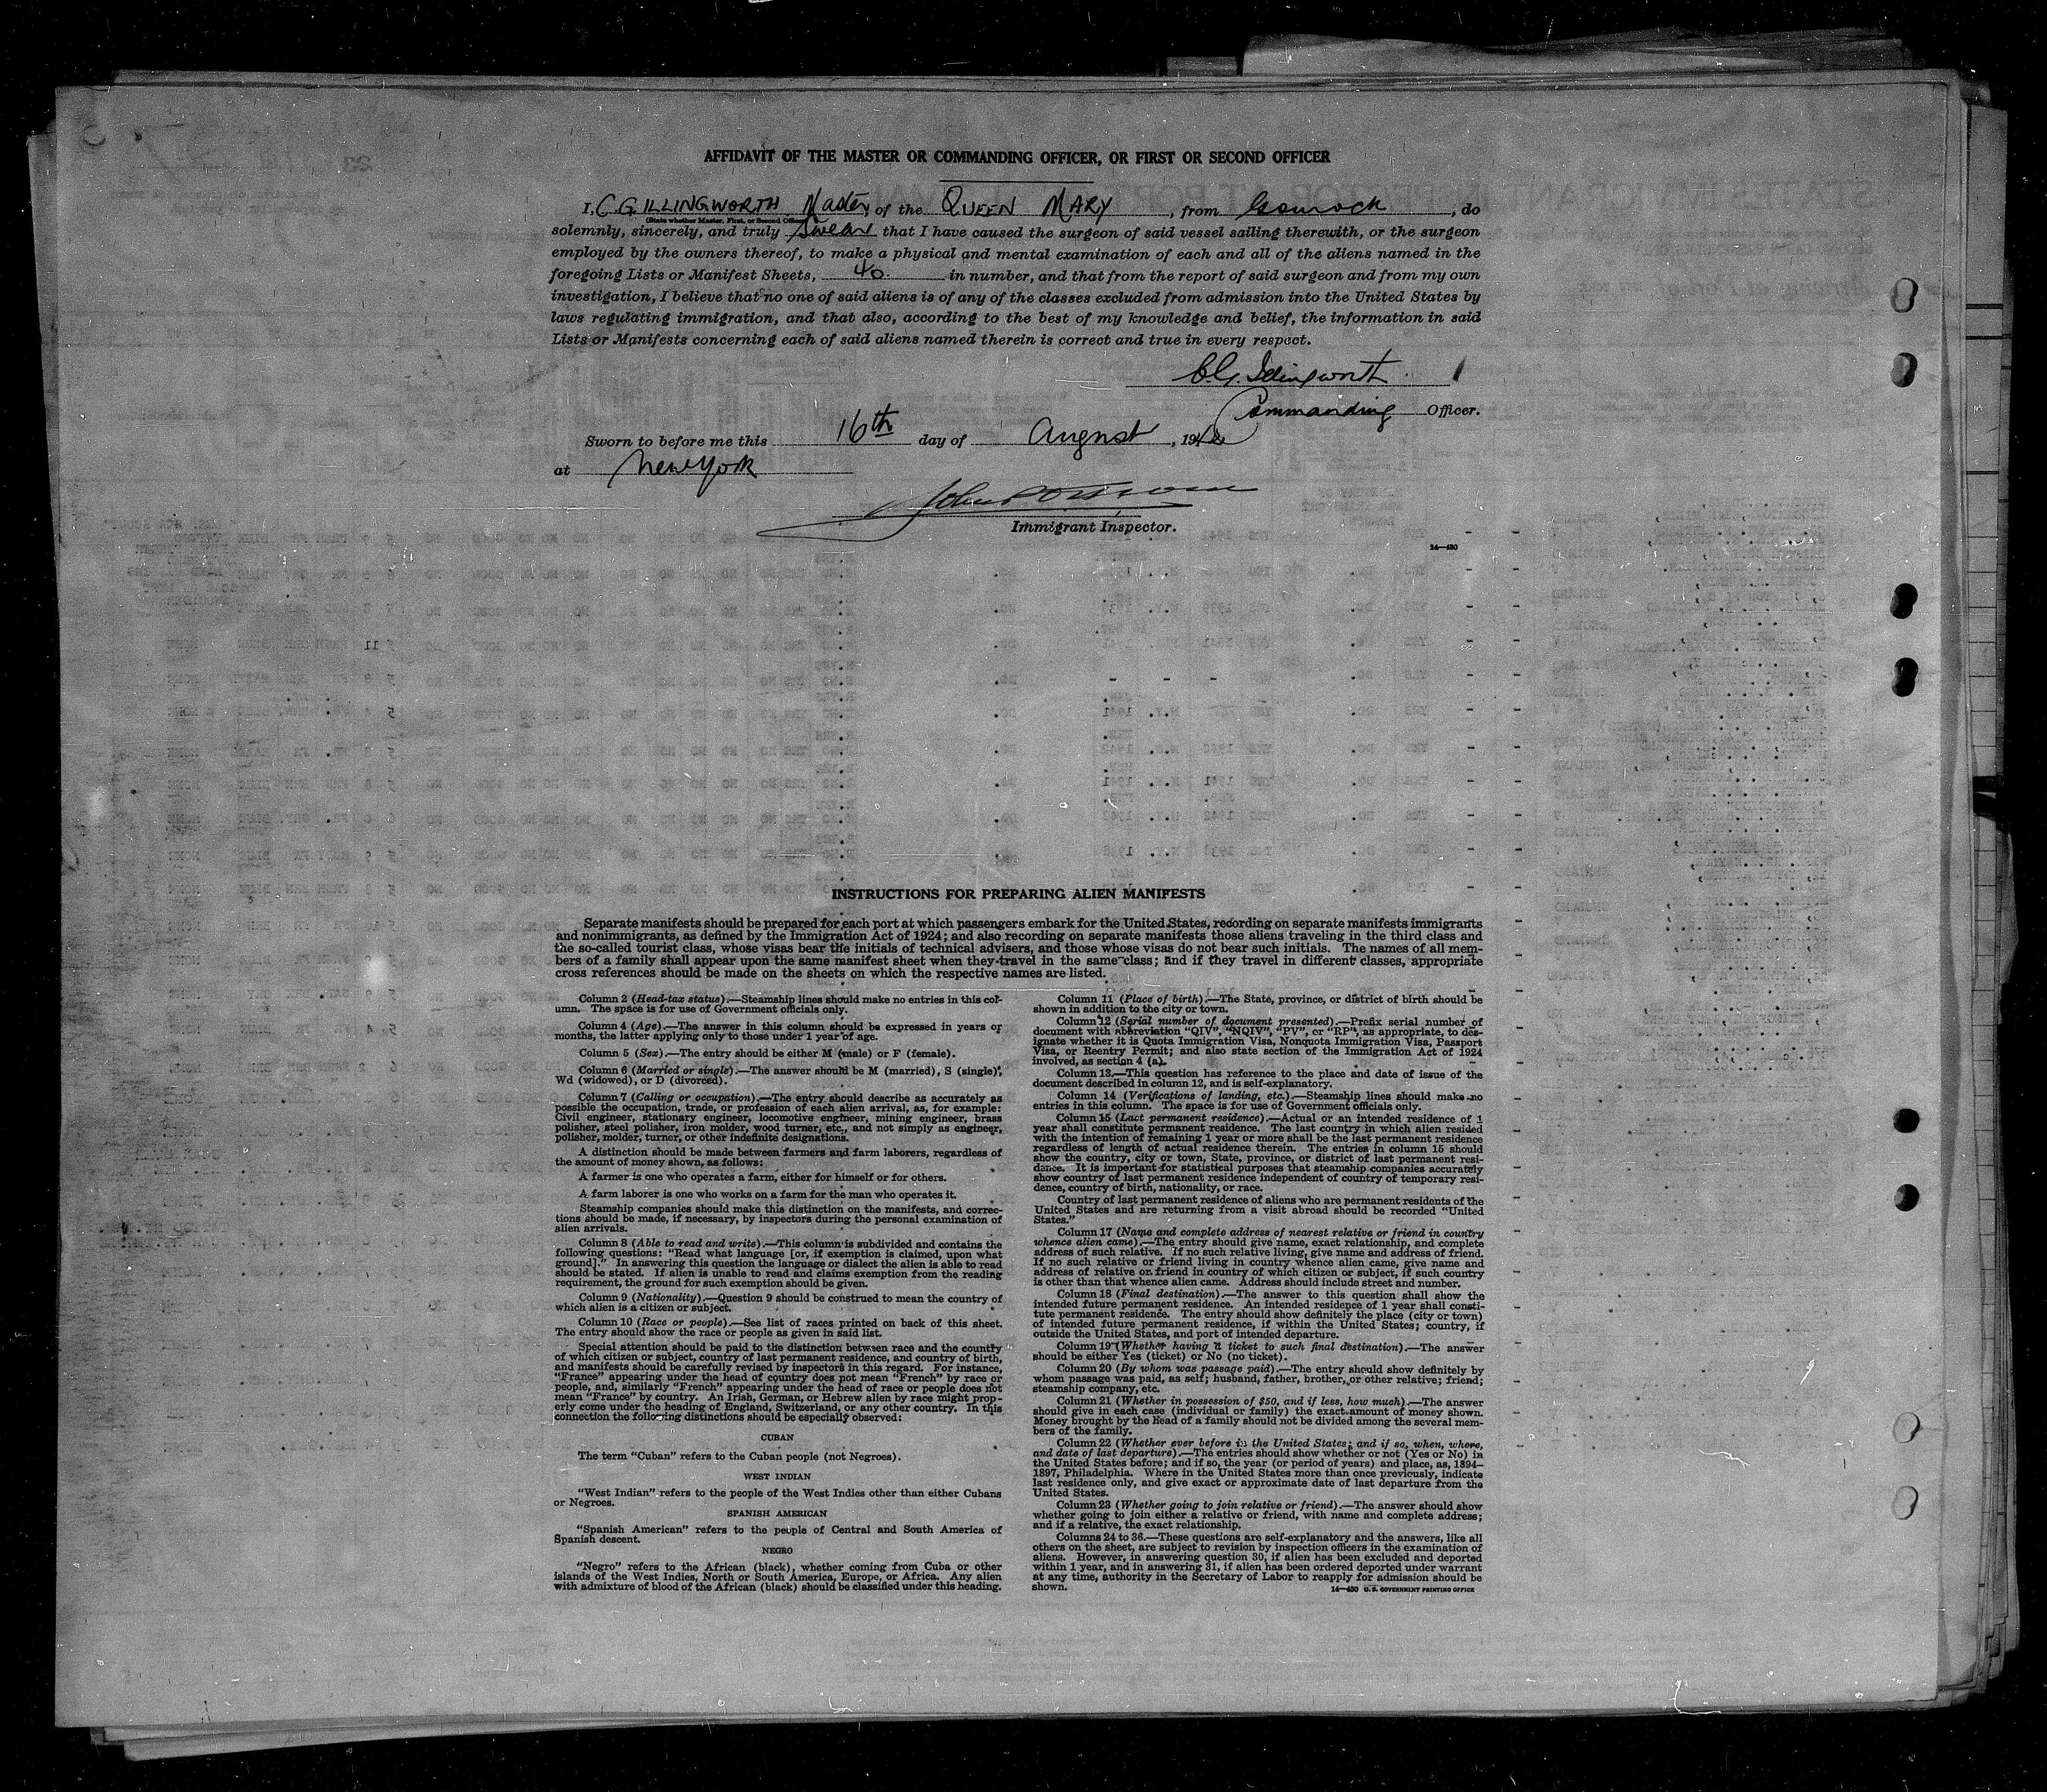 AFFIDAVIT OF THE MASTER OR COMMANDING OFFICER, OR FIRST OR SECOND OFFICER
I, C.G. ILLINGWORTH Master, of the QUEEN MARY, from Gourock, do
(State whether Master, First, or Second Officer)
solemnly, sincerely, and truly swear that I have caused the surgeon of said vessel sailing therewith, or the surgeon
employed by the owners thereof, to make a physical and mental examination of each and all of the aliens named in the
foregoing Lists or Manifest Sheets, 40. in number, and that from the report of said surgeon and from my own
investigation, I believe that no one of said aliens is of any of the classes excluded from admission into the United States by
laws regulating immigration, and that also, according to the best of my knowledge and belief, the information in said
Lists or Manifests concerning each of said aliens named therein is correct and true in every respect.
C.G. Illingworth
Commanding Officer.
Sworn to before me this 16th day of August, 194
at New York
Immigrant Inspector.
14—430
INSTRUCTIONS FOR PREPARING ALIEN MANIFESTS
Separate manifests should be prepared for each port at which passengers embark for the United States, recording on separate manifests immigrants
and nonimmigrants, as defined by the Immigration Act of 1924; and also recording on separate manifests those aliens traveling in the third class and
the so-called tourist class, whose visas bear the initials of technical advisers, and those whose visas do not bear such initials. The names of all mem-
bers of a family shall appear upon the same manifest sheet when they travel in the same class; and if they travel in different classes, appropriate
cross references should be made on the sheets on which the respective names are listed.
Column 2 (Head-tax status).—Steamship lines should make no entries in this col-
umn. The space is for use of Government officials only.
Column 4 (Age).—The answer in this column should be expressed in years or
months, the latter applying only to those under 1 year of age.
Column 5 (Sex).—The entry should be either M (male) or F (female).
Column 6 (Married or single).—The answer should be M (married), S (single),
Wd (widowed), or D (divorced).
Column 7 (Calling or occupation).—The entry should describe as accurately as
possible the occupation, trade, or profession of each alien arrival, as, for example:
Civil engineer, stationary engineer, locomotive engineer, mining engineer, brass
polisher, steel polisher, iron molder, wood turner, etc., and not simply as engineer,
polisher, molder, turner, or other indefinite designations.
A distinction should be made between farmers and farm laborers, regardless of
the amount of money shown, as follows:
A farmer is one who operates a farm, either for himself or for others.
A farm laborer is one who works on a farm for the man who operates it.
Steamship companies should make this distinction on the manifests, and correc-
tions should be made, if necessary, by inspectors during the personal examination of
alien arrivals.
Column 8 (Able to read and write).—This column is subdivided and contains the
following questions: "Read what language [or, if exemption is claimed, upon what
ground]." In answering this question the language or dialect the alien is able to read
should be stated. If alien is unable to read and claims exemption from the reading
requirement, the ground for such exemption should be given.
Column 9 (Nationality).—Question 9 should be construed to mean the country of
which alien is a citizen or subject.
Column 10 (Race or people).—See list of races printed on back of this sheet.
The entry should show the race or people as given in said list.
Special attention should be paid to the distinction between race and the country
of which citizen or subject, country of last permanent residence, and country of birth,
and manifests should be carefully revised by inspectors in this regard. For instance,
"France" appearing under the head of country does not mean "French" by race or
people, and, similarly "French" appearing under the head of race or people does not
mean "France" by country. An Irish, German, or Hebrew alien by race might prop-
erly come under the heading of England, Switzerland, or any other country. In this
connection the following distinctions should be especially observed:
CUBAN
The term "Cuban" refers to the Cuban people (not Negroes).
WEST INDIAN
"West Indian" refers to the people of the West Indies other than either Cubans
or Negroes.
SPANISH AMERICAN
"Spanish American" refers to the people of Central and South America of
Spanish descent.
NEGRO
"Negro" refers to the African (black), whether coming from Cuba or other
islands of the West Indies, North or South America, Europe, or Africa. Any alien
with admixture of blood of the African (black) should be classified under this heading.
Column 11 (Place of birth).—The State, province, or district of birth should be
shown in addition to the city or town.
Column 12 (Serial number of document presented).—Prefix serial number of
document with abbreviation "QIV", "NQIV", "PV", or "RP", as appropriate, to des-
ignate whether it is Quota Immigration Visa, Nonquota Immigration Visa, Passport
Visa, or Reentry Permit; and also state section of the Immigration Act of 1924
involved, as section 4 (a).
Column 13.—This question has reference to the place and date of issue of the
document described in column 12, and is self-explanatory.
Column 14 (Verifications of landing, etc.).—Steamship lines should make no
entries in this column. The space is for use of Government officials only.
Column 15 (Last permanent residence).—Actual or an intended residence of 1
year shall constitute permanent residence. The last country in which alien resided
with the intention of remaining 1 year or more shall be the last permanent residence
regardless of length of actual residence therein. The entries in column 15 should
show the country, city or town, State, province, or district of last permanent resi-
dence. It is important for statistical purposes that steamship companies accurately
show country of last permanent residence independent of country of temporary resi-
dence, country of birth, nationality, or race.
Country of last permanent residence of aliens who are permanent residents of the
United States and are returning from a visit abroad should be recorded "United
States."
Column 17 (Name and complete address of nearest relative or friend in country
whence alien came).—The entry should give name, exact relationship, and complete
address of such relative. If no such relative living, give name and address of friend.
If no such relative or friend living in country whence alien came, give name and
address of relative or friend in country of which citizen or subject, if such country
is other than that whence alien came. Address should include street and number.
Column 18 (Final destination).—The answer to this question shall show the
intended future permanent residence. An intended residence of 1 year shall consti-
tute permanent residence. The entry should show definitely the place (city or town)
of intended future permanent residence, if within the United States; country, if
outside the United States, and port of intended departure.
Column 19 (Whether having a ticket to such final destination).—The answer
should be either Yes (ticket) or No (no ticket).
Column 20 (By whom was passage paid).—The entry should show definitely by
whom passage was paid, as self; husband, father, brother, or other relative; friend;
steamship company, etc.
Column 21 (Whether in possession of $50, and if less, how much).—The answer
should give in each case (individual or family) the exact amount of money shown.
Money brought by the head of a family should not be divided among the several mem-
bers of the family.
Column 22 (Whether ever before in the United States; and if so, when, where,
and date of last departure).—The entries should show whether or not (Yes or No) in
the United States before; and if so, the year (or period of years) and place, as, 1894–
1897, Philadelphia. Where in the United States more than once previously, indicate
last residence only, and give exact or approximate date of last departure from the
United States.
Column 23 (Whether going to join relative or friend).—The answer should show
whether going to join either a relative or friend, with name and complete address;
and if a relative, the exact relationship.
Columns 24 to 36.—These questions are self-explanatory and the answers, like all
others on the sheet, are subject to revision by inspection officers in the examination of
aliens. However, in answering question 30, if alien has been excluded and deported
within 1 year, and in answering 31, if alien has been ordered deported under warrant
at any time, authority in the Secretary of Labor to reapply for admission should be
shown.
14—430 U.S. GOVERNMENT PRINTING OFFICE